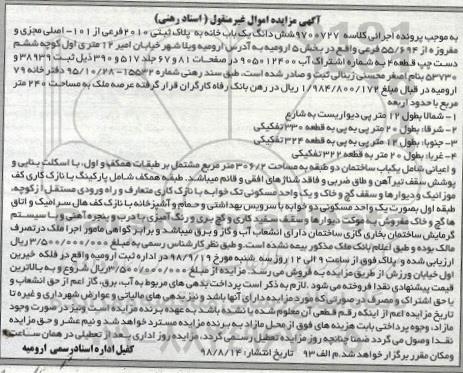 آگهی مزایده اموال غیرمنقول ( اسناد رهنی)
به موجب پرونده اجرائی کلاسه ۹۷۰۰۷۲۷شش دانگ یک باب خانه به پلاک ثبتی ۲۰۱۰فرعی از ۱۰۱- اصلی مجزی و
مفروزه از ۵۵/۶۹۴ فرعی واقع در بخش ۵ ارومیه به آدرس ارومیه ویلا شهر خیابان امیر ۱۲ متری اول کوچه ششم
دست چپ قطعه۴ به شماره اشتراک آب ۹۰۵۰۱۲۴۰۰ در صفحات ۸۱ و ۶۷ جلد ۵۱۷ و ۳۹۰ ذیل ثبت ۳۸۹۳۹ و
۵۳۷۳۰ بنام اصغر محسنی زینالی ثبت و صادر شده است. طبق سند رهنی شماره ۱۵۵۳۲-۹۵/۱۰/۲۸ دفترخانه ۷۹
ارومیه در قبال مبلغ ۱/۹۸۴/۸۰۰/۱۷۲ ریال در رهن بانک رفاه کارگران قرار گرفته عرصه ملک به مساحت ۲۴۰ متر
مربع با حدود اربعه
۱- شمالا بطول ۱۲ متر پی دیواریست به شارع
۲- شرقا: بطول ۲۰ متر پی به پی به قطعه ۳۳۰ تفکیکی
۳- جنوبا: بطول ۱۲ متر پی به پی به قطعه ۳۲۴ تفکیکی
۴- غربا: بطول ۲۰ متر به قطعه ۳۲۲ تفکیکی
و اعیانی شامل یکباب ساختمان دو طبقه به مساحت ۳۰۶/۲ متر مربع مشتمل بر طبقات همکف و اول، با اسکلت بنایی و
پوشش سقف تیرآهن و طاق ضربی و فاقد شناژهای افقی و قائم میباشد. طبقه همکف شامل پارکینگ با نازک کاری کف
موزائیک و دیوارها و سقف گچ و خاک و یک واحد مسکونی تک خوابه با نازک کاری متعارف و راه ورودی مستقل از کوچه.
طبقه اول بصورت یک واحد مسکونی دو خوابه با سرویس بهداشتی و حمام و آشپزخانه با نازک کف هال سرامیک و اتاق
ها گچ و خاک مفروش به موکت دیوارها و سقف سفید کاری و گچ بری و رنگ آمیزی با درب و پنجره آهنی و با سیستم
گرمایش ساختمان بخاری گازی ساختمان دارای انشعاب آب و گاز و برق میباشد و برابر گواهی مامور اجرا ملک درتصرف
مالک بوده و طبق اعلام بانک ملک مذکور بیمه نشده است. و طبق نظر کارشناس رسمی به مبلغ ۳/۵۰۰/۰۰۰/۰۰۰ ریال
ارزیابی شده و پلاک فوق از ساعت ۹ الی ۱۲ روز سه شنبه مورخ ۹۸/۹/۱۹ در اداره ثبت ارومیه واقع در فلکه خیرین
اول خیابان ورزش از طریق مزایده به فروش می رسد. مزایده از مبلغ ۳/۵۰۰/۰۰۰/۰۰۰ ریال شروع و به بالاترین
قیمت پیشنهادی نقدا فروخته می شود. لازم به ذکر است پرداخت بدهی های مربوط به آب، برق، گاز اعم از حق انشعاب و
یا حق اشتراک و مصرف در صورتی که مورد مزایده دارای آنها باشد و نیز بدهی های مالیاتی و عوارض شهرداری و غیره تا
تاریخ مزایده اعم از اینکه رقم قطعی آن معلوم شده یا نشده باشد به عهده برنده مزایده است ونیز در صورت وجود
مازاد، وجوه پرداختی بابت هزینه های فوق از محل مازاد به برنده مزایده مسترد خواهد شد و نیم عشر و حق مزایده
نقدا وصول می گردد ضمنا چنانچه روز مزایده تعطیل رسمی گردد، مزایده روز اداری بعد از تعطیلی در همان ساعت
ومکان مقرر برگزار خواهد شد. م الف ۹۳ تاریخ انتشار: ۹۸/۸/۱۴
کفیل اداره اسنادرسمی ارومیه